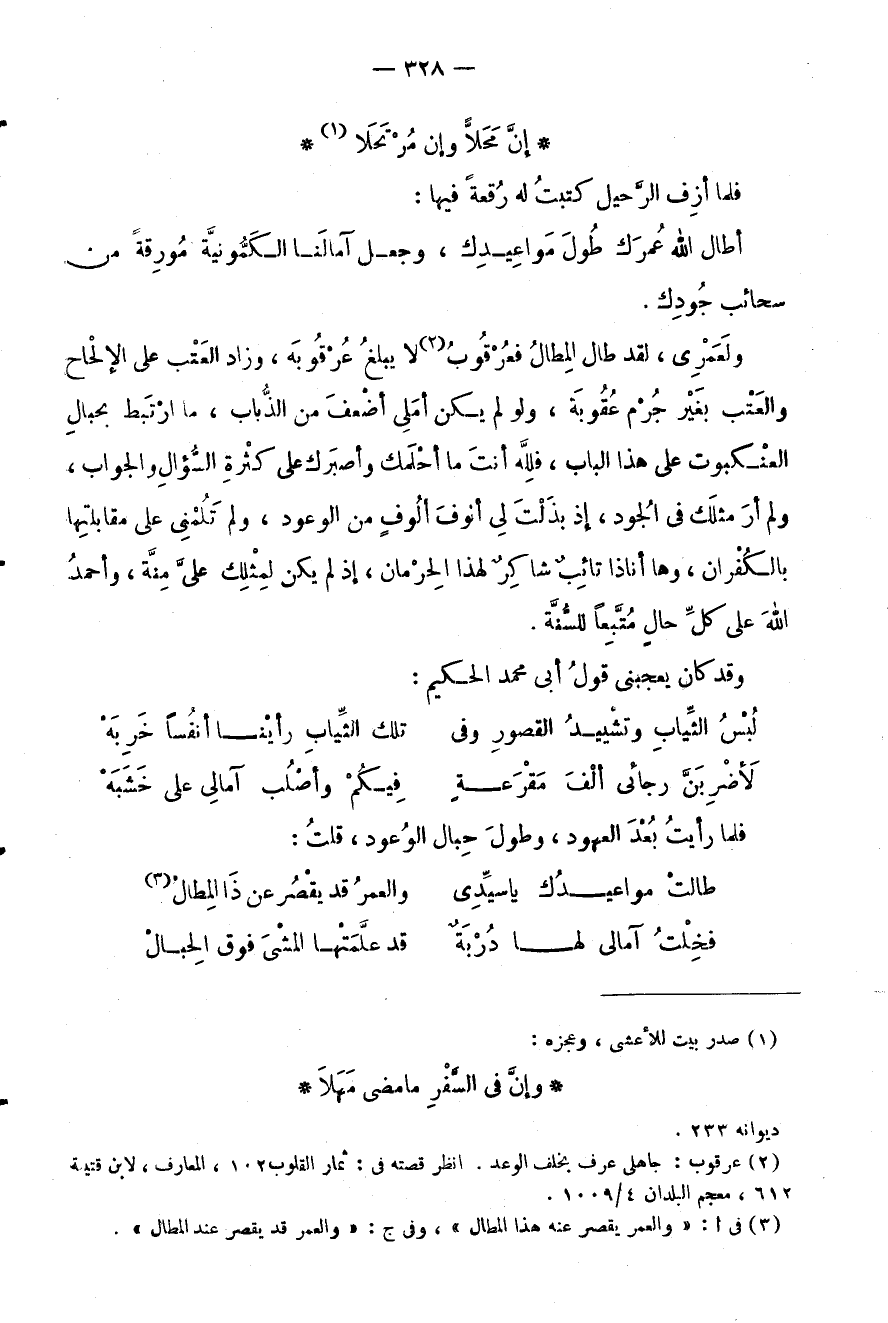 — ٣٢٨ —
* إنَّ مَحَلاًّ وإن مُرْتَحَلَا (١) *
فلما أزِف الرَّحيل كتبتُ له رُقعةً فيها :
أطال اللهُ عُمرَك طُولَ مَواعِيدِك ، وجعل آمالَنا الكَمُّونيَّة مُورِقةً من
سحائب جُودِك .
ولَعَمْرِى ، لقد طال المِطالُ فعُرْقُوبُ (٢) لا يبلغُ عُرْقُوبَه ، وزاد العَتْب على الإلْحاح
والعَتْب بغَيْر جُرْم عُقُوبَة ، ولو لم يكن أمَلِى أضْعفَ من الذُّباب ، ما ارْتَبط بحبالِ
العنْكبوت على هذا الباب ، فللَّه أنتَ ما أحْلَمك وأصبَرك على كثْرةِ السُّؤالِ والجواب ،
ولم أرَ مثلَك فى الجود ، إذ بذَلْتَ لِى أنوفَ ألُوفٍ من الوعود ، ولم تَلُمْنِى على مقابلتِها
بالكُفْران ، وها أناذا تائبٌ شاكِرٌ لهذا الحِرْمان ، إذ لم يكن لمِثْلِك علىَّ مِنَّة ، وأحمدُ
اللهَ على كلِّ حالٍ مُتَّبِعاً للسُّنَّة .
وقد كان يعجبنى قولُ أبى محمد الحكيم :
لُبْسُ الثِّيابِ وتشْيِيدُ القصورِ وفى تلك الثِّيابِ رأيْنا أنفُساً خَرِبَهْ
لَأضْرِبَنَّ رجائى ألْفَ مَقْرَعةٍ فِيكُمْ وأصْلُب آمالِى على خَشَبَهْ
فلما رأيتُ بُعْدَ العهود ، وطولَ حِبال الوُعود ، قلتُ :
طالتْ مواعيدُك ياسيِّدِى والعمرُ قد يقْصُر عن ذَا المِطالْ (٣)
فخِلْتُ آمالى لها دُرْبَةٌ قد علَّمَتْها المشْىَ فوق الحِبالْ
(١) صدر بيت للأعشى ، وعجزه :
* وإنَّ فى السَّفْرِ مامضى مَهَلَا *
ديوانه ٢٣٣ .
(٢) عرقوب : جاهلى عرف بخلف الوعد . انظر قصته فى : ثمار القلوب ١٠٢ ، المعارف ، لابن قتيبة
٦١٢ ، معجم البلدان ١٠٠٩/٤ .
(٣) فى ا : « والعمر يقصر عنه هذا المطال » ، وفى ج : « والعمر قد يقصر عند المطال » .